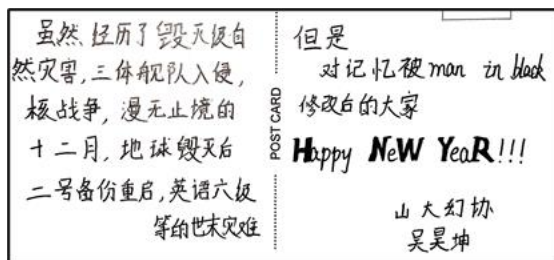 虽然经历了毁灭级自
然灾害,三体舰队入侵,
核战争,漫无止境的
十二月,地球毁灭后
二号备份重启,英语六级
等的世末灾难
POST CARD
但是
对记忆被man in black
修改后的大家
Happy NeW YeaR!!!
山大幻协
吴昊坤